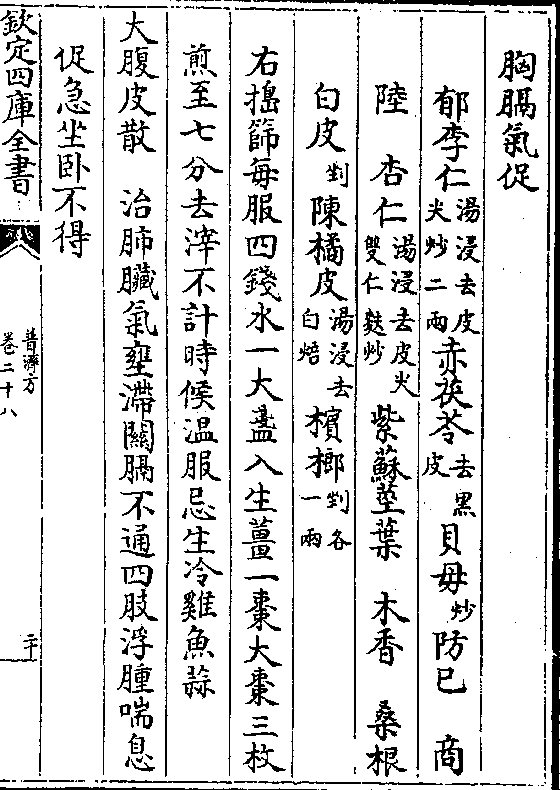 胸膈氣促
郁李仁湯浸去皮尖炒二兩赤茯苓去黑皮貝母炒防已　商
陸　杏仁湯浸去皮尖雙仁麩炒紫蘇莖葉　木香　桑根
白皮剉陳橘皮湯浸去白焙檳榔剉各一兩
右搗篩每服四錢水一大盞入生薑一棗大棗三枚
煎至七分去滓不計時候温服忌生冷雞魚蒜
大腹皮散　治肺臟氣壅滯關膈不通四肢浮腫喘息
促急坐卧不得
欽定四庫全書
普濟方
卷二十八
二十